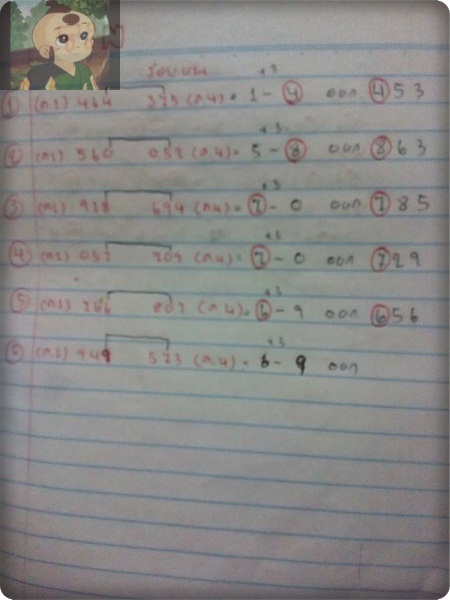 รอบบน
① (ก1) 464 375 (ก4) = 1 - ④ ออก ④53
+3
② (ก1) 560 052 (ก4) = 5 - ⑧ ออก ⑧63
+3
③ (ก1) 918 694 (ก4) = ⑦ - 0 ออก ⑦85
+3
④ (ก1) 057 709 (ก4) = ⑦ - 0 ออก ⑦29
+3
⑤ (ก1) 266 007 (ก4) = ⑥ - 9 ออก ⑥56
+3
⑥ (ก1) 949 573 (ก4) = 6 - 9 ออก